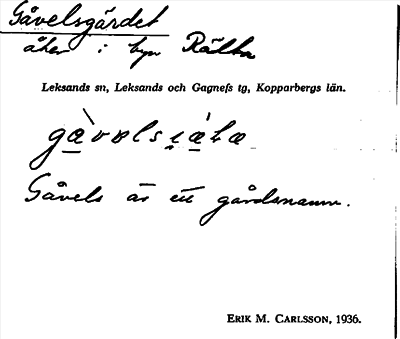 Gåvelsgärdet
åker i byn Rälta
Leksands sn, Leksands och Gagnefs tg, Kopparbergs län.
Gåvels är ett gårdsnamn.
ERIK M. CARLSSON, 1936.